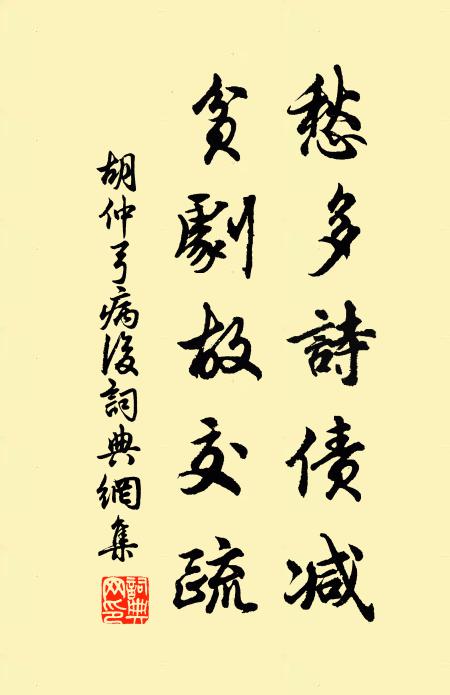 愁多詩債減
貧劇故交疏
胡仲弓病後詞典網集